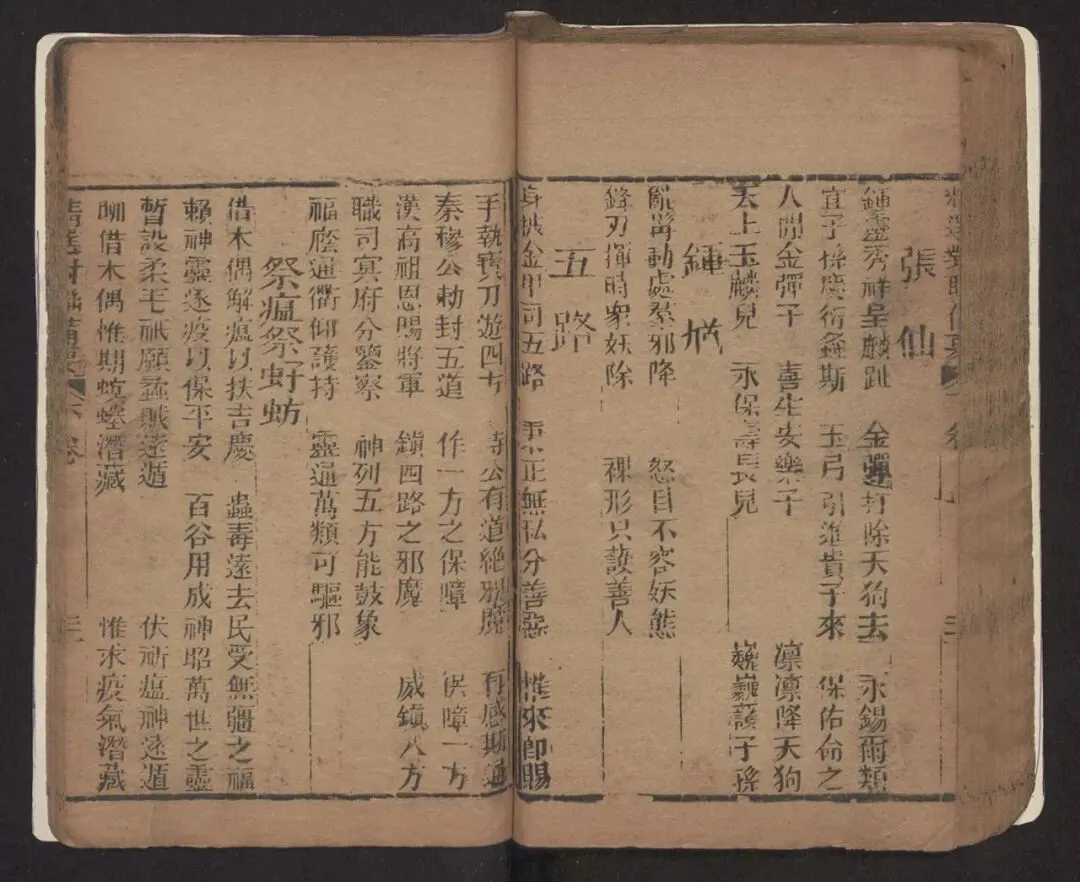 張仙
鍾靈秀祥呈麟趾 金彈打除天狗去 永錫爾類
宜子孫慶衍螽斯 玉弓引進貴子來 保佑命之
人間金彈子 喜生安樂子 凜凜降天狗
天上玉麟兒 永保壽長兒 巍巍護子孫
鍾馗
動處羣邪降 怒目不容妖
鋒刃揮時衆妖除 裸形只護善人
五路
身 金甲司五路 秉正無私分善惡 惟來即賜
手執寶刀遊四方 有道絕邪魔 有感斯通
秦穆公勅封五道 作一方之保障 保障一方
漢高祖恩賜將軍 鎮四路之邪魔 威鎮八方
職司冥府分鑒察 神列五方能鼓象
福廕通衢仰護持 靈通萬類可驅邪
祭瘟祭虸蚄
借木偶解瘟以扶吉慶 蟲毒遠去民受無疆之福
賴神靈逐疫以保平安 百谷用成神昭萬世之靈
暫設柔毛祇願蟊賊遠遁 伏祈瘟神遠遁
聊借木偶惟期 潛藏 惟求疫氣潛藏